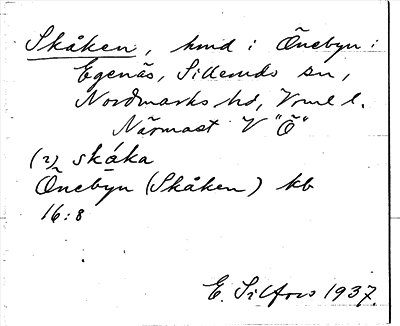 Skåken, hmd i Õnebyn i
Egenäs, Silleruds sn,
Nordmarks hd, Vrml l.
Närmast V "Õ"
(2) skåka
Õnebyn (Skåken) kb
16:8
E. Silfors 1937.